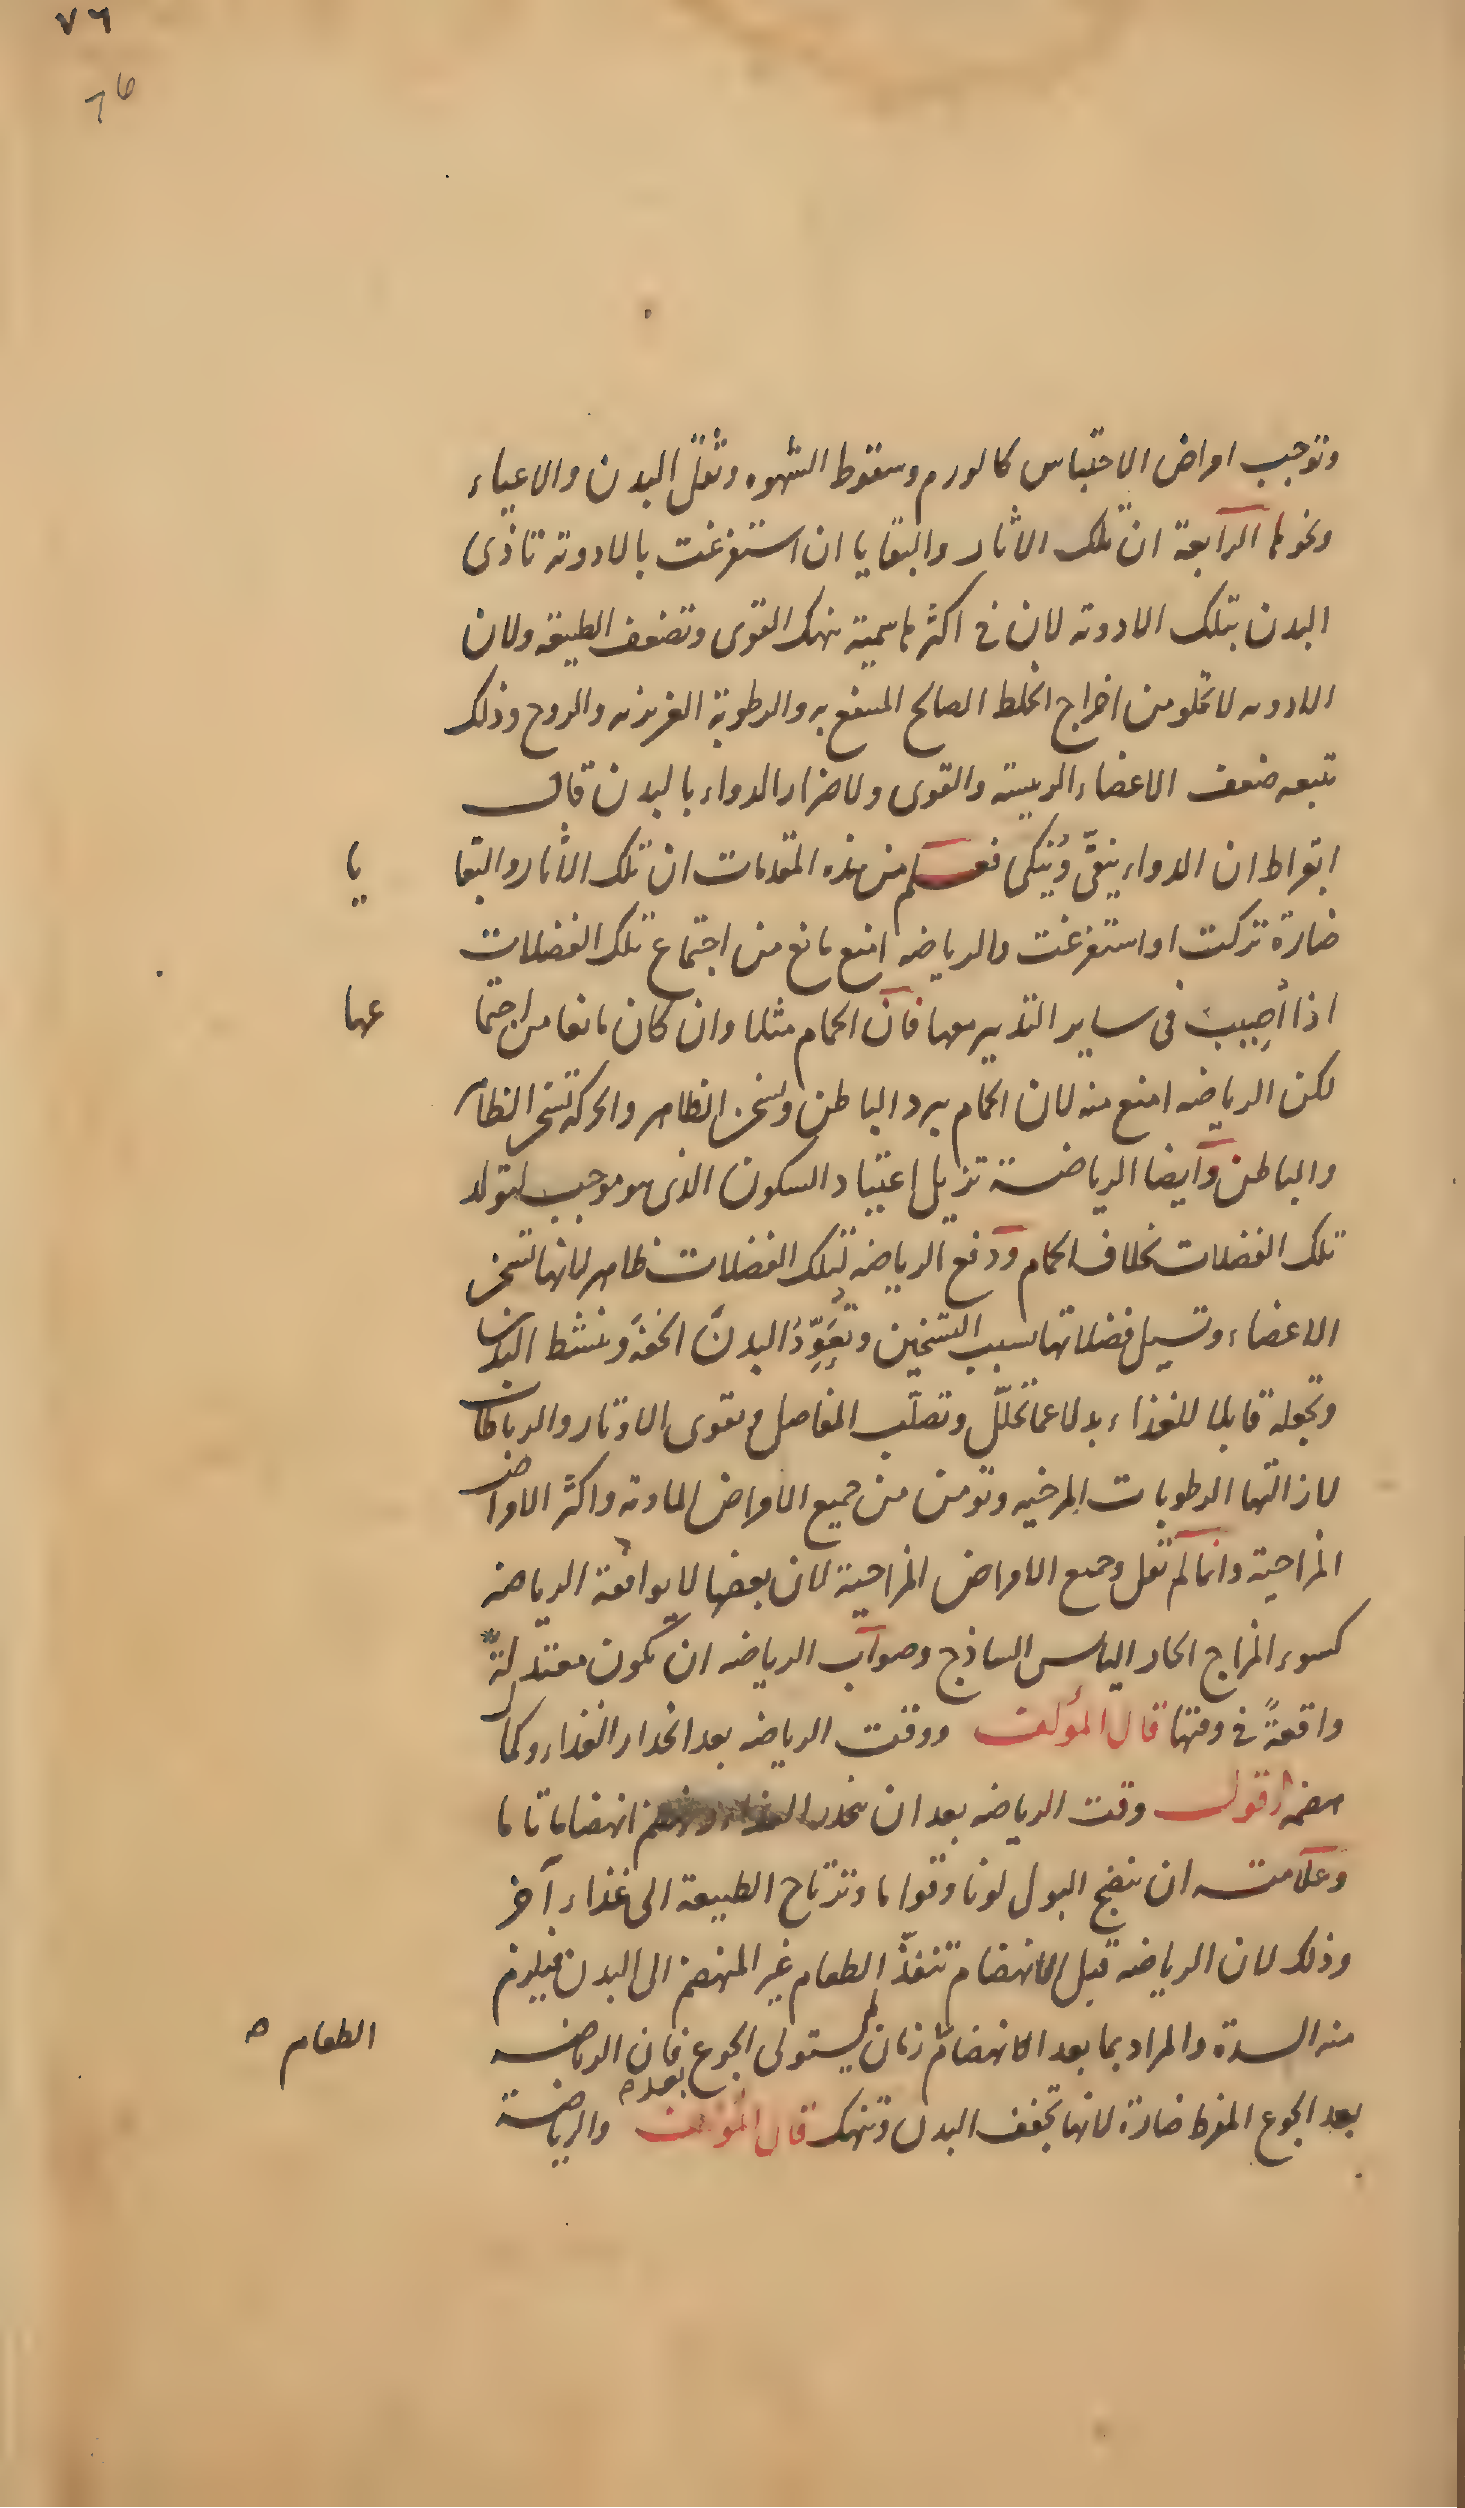 ٧٦
76
وتوجب امراض الاحتباس كالورم وسقوط الشهوه وثقل البدن والاعياء
ونحوها الرابعة ان تلك الاثار والبقايا ان استفرغت بالادوية تاذى
البدن بتلك الادوية لان فى اكثرها سمية تنهك القوى وتضعف الطبيعة ولان
الادويه لا تخلو من اخراج الخلط الصالح المنتفع به والرطوبة الغريزيه والروح وذلك
تتبعه ضعف الاعضاء الرييسة والقوى ولاضرار الدواء بالبدن قال
ابقراط ان الدواء ينقّى وُينكى فعلم من هذه المقدمات ان تلك الاثار والبقا يا
ضارة تركت او استفرغت والرياضه امنع مانع من اجتماع تلك الفضلات
اذا أُصِيبت فى ساير التدبير معها فان الحمام مثلا وان كان مانعا من اجتما عها
لكن الرياضه امنع منه لان الحمام يبرد الباطن ويسخن الظاهر والحركة تسخن الظاهر
والباطن وايضا الرياضة تزيل اعتياد السكون الذى هو موجب لتولد
تلك الفضلات بخلاف الحمام ودفع الرياضه لتلك الفضلات ظاهر لانها تسخن
الاعضاء وتسيل فضلاتها بسبب التسخين وتُعَوِّدُ البدنَ الخفةَ وتنشط البدن
وتجعله قابلا للغذاء بدلا عما تحلّل وتصلّب المفاصل وتقوى الاوتار والرباطات
لازالتها الرطوبات المرخيه وتومن من جميع الامراض المادية واكثر الامراض
المزاجية وانما لم نقل وجميع الامراض المزاجية لان بعضها لا يوافقه الرياضه
كسوء المزاج الحار اليابس الساذج وصواب الرياضه ان تكون معتدلةً
واقعةً فى وقتها قال المؤلف ووقت الرياضه بعد انحدار الغذاء وكمال
هضمه اقول وقت الرياضه بعد ان ينحدر الغذاء وينهضم انهضاما تاما
وعلامته ان ينضج البول لونا وقواما وترتاح الطبيعة الى غذاء آخر
وذلك لان الرياضه قبل الانهضام تنفذّ الطعام غير المنهضم الى البدن فيلزم
منه السدة والمراد بما بعد الانهضام زمان لم يستولى الجوع بعده فان الرياضه
الطعام صح
بعد الجوع المفرط ضارة لانها تجفف البدن وتنهك قال المؤلف والرياضة